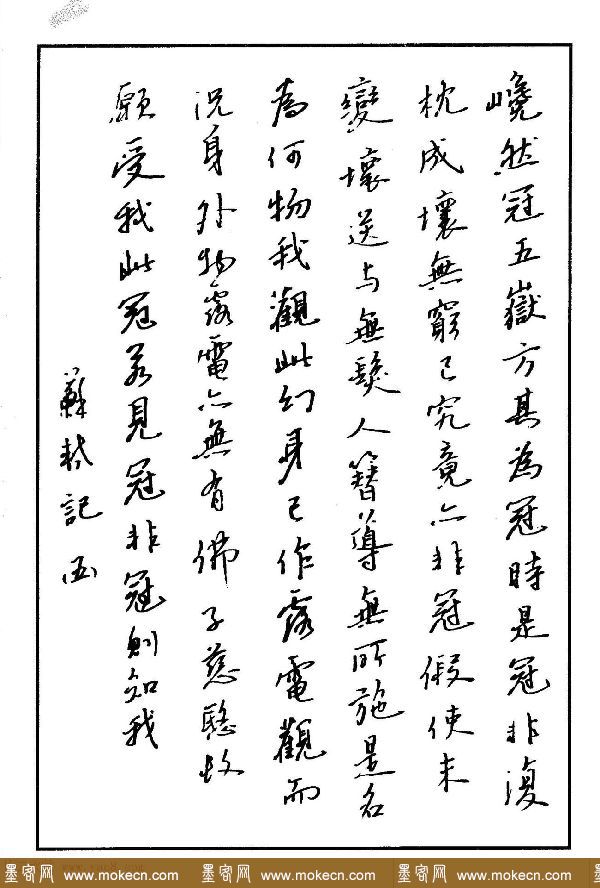 巉然冠五嶽方其為冠時是冠非復
枕成壞無窮已究竟亦非冠假使未
變壞送与無髮人簪導無所施是名
為何物我觀此幻身已作露電觀而
况身外物露電亦無有佛子慈愍故
願受我此冠若見冠非冠則知我
蘇 記
墨客网 www.mokecn.com 墨客网 www.mokecn.com 墨客网 www.mokecn.com